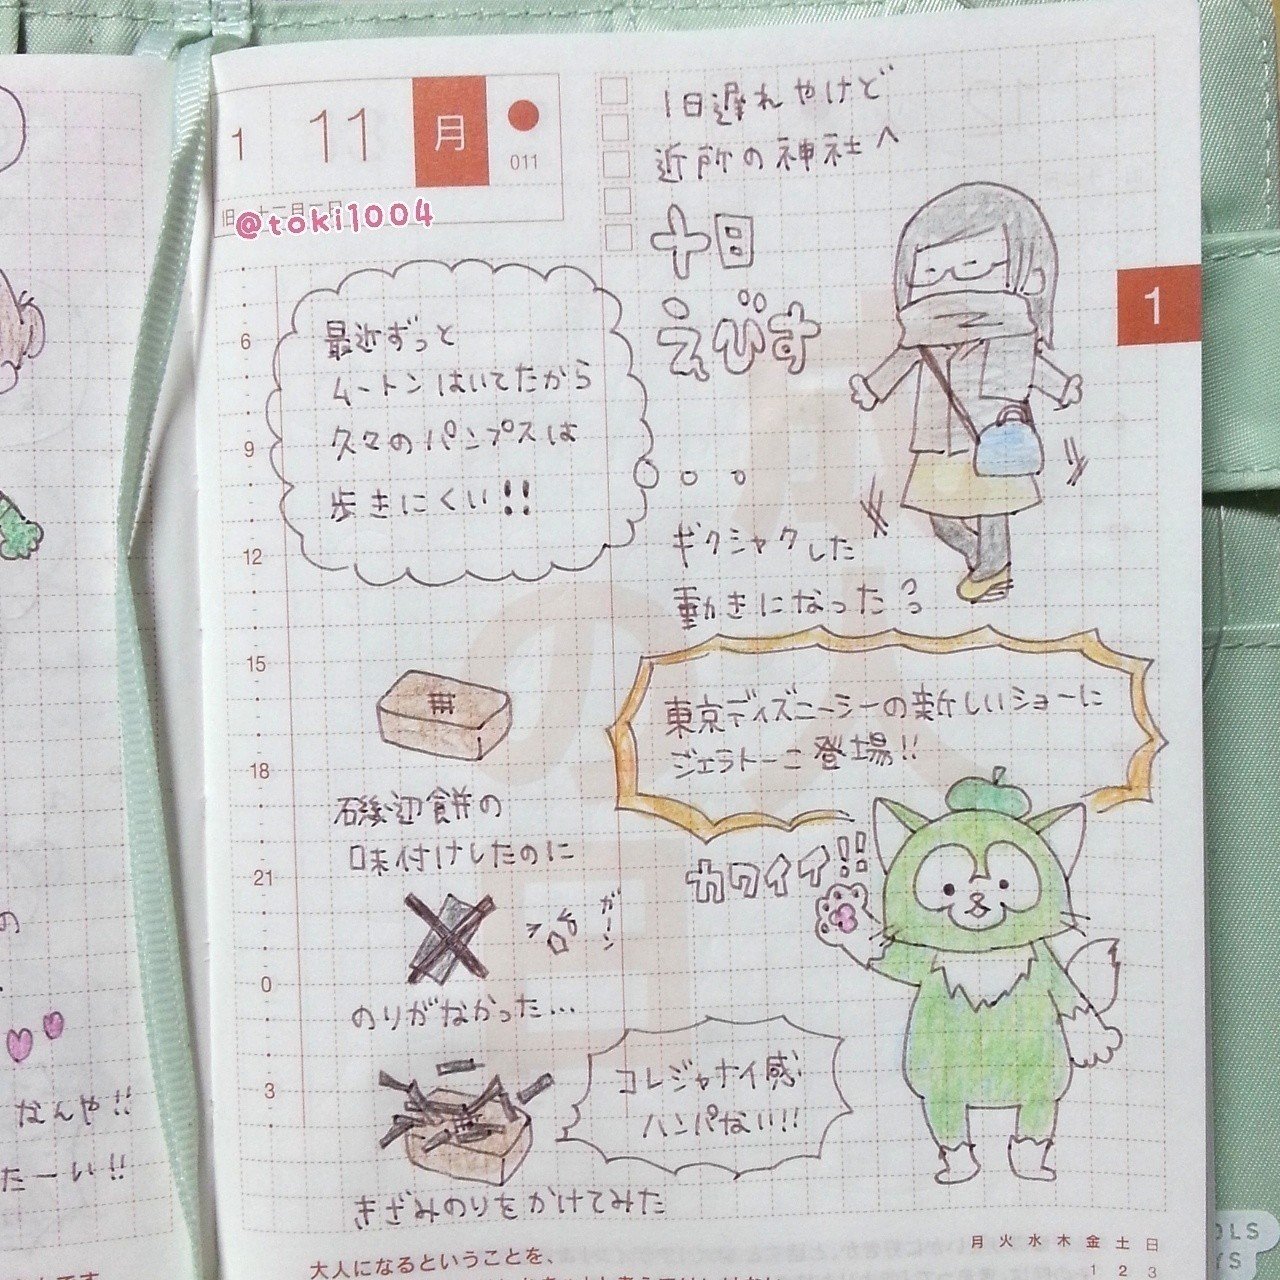 1 11 月
011
@toki1004
1日遅れやけど
近所の神社へ
十日
えびす
1
最近ずっと
ムートンはいてたから
久々のパンプスは
歩きにくい!!
ギクシャクした
動きになった
6
9
12
15
18
21
0
3
東京ディズニーシーの新しいショーに
ジェラトーニ登場!!
カワイイ!!
磯辺餅の
味付けしたのに
ガーン
のりがなかった…
コレジャナイ感
ハンパない!!
きざみのりをかけてみた
なんや!!
たーい!!
の
月 火 水 木 金 土 日
1 2 3
大人になるということを、
です